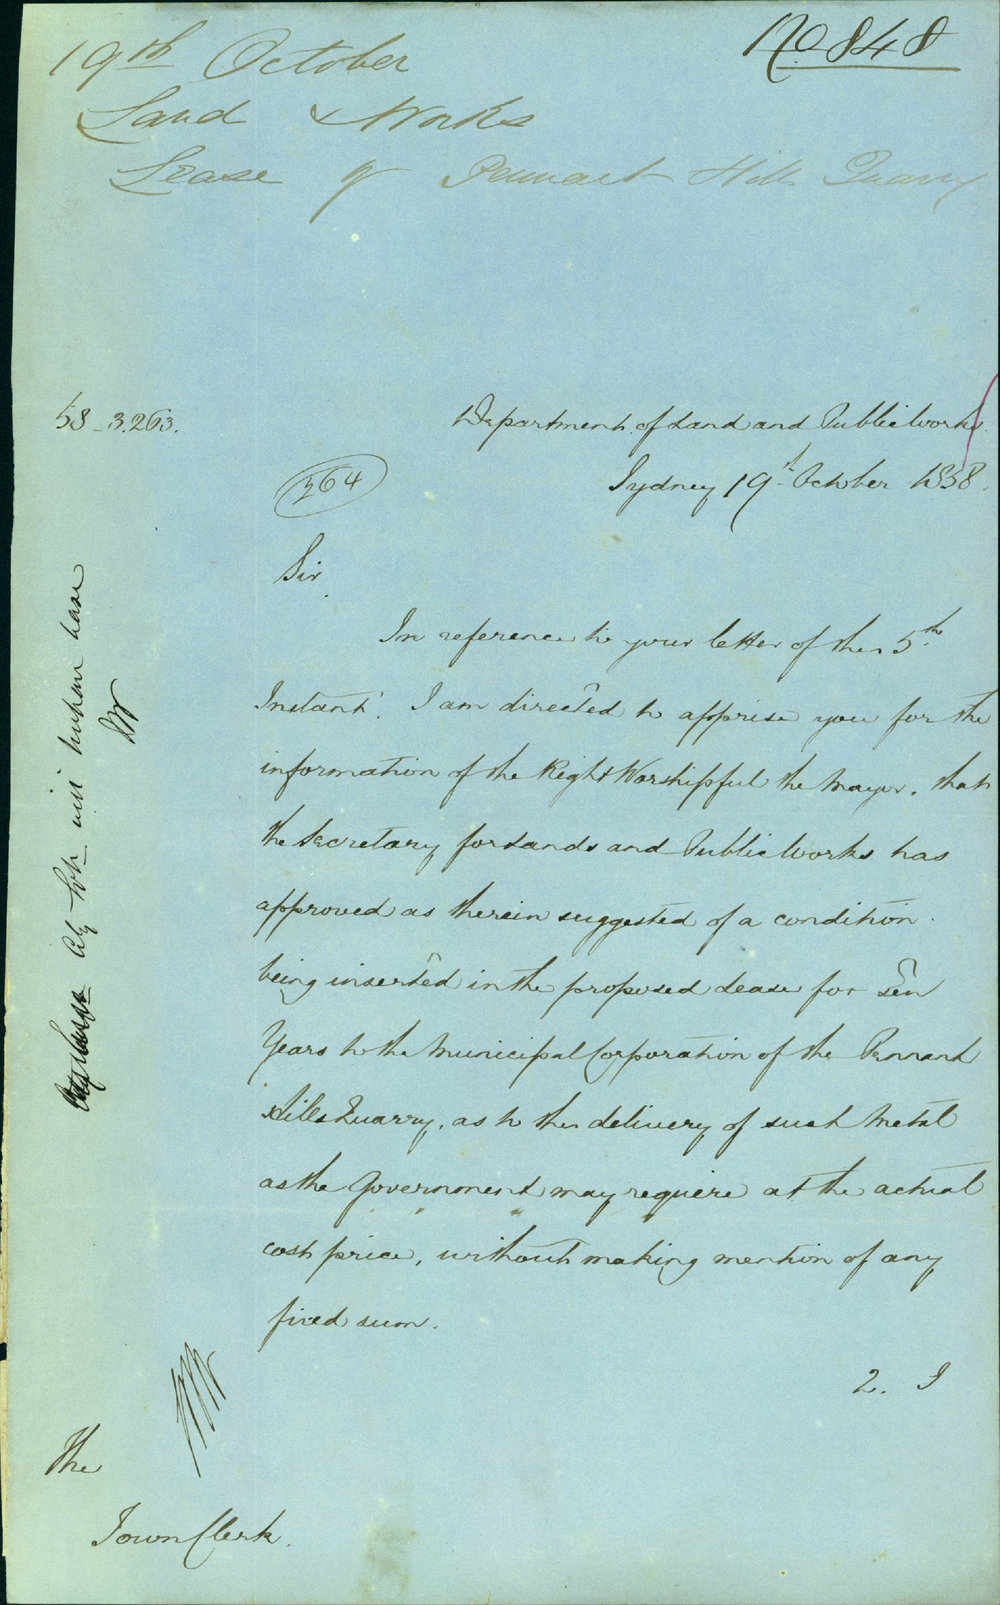 No 848
19th October
Land & Works
Lease of Pennant Hills Quarry
58-3.263.
Department of Land and Public Works.
264
Sydney 19th October 1858.
Sir,
In reference to your letter of the 5th
Instant. I am directed to apprise you for the
information of the Right Worshipful the Mayor, that
the Secretary for Lands and Public Works has
approved as therein suggested of a condition
being inserted in the proposed Lease for Ten
Years to the Municipal Corporation of the Pennant
Hills Quarry, as to the delivery of such Metal
as the Government may require at the actual
cost price, without making mention of any
fixed sum.
2. I
The
Town Clerk.
City will have